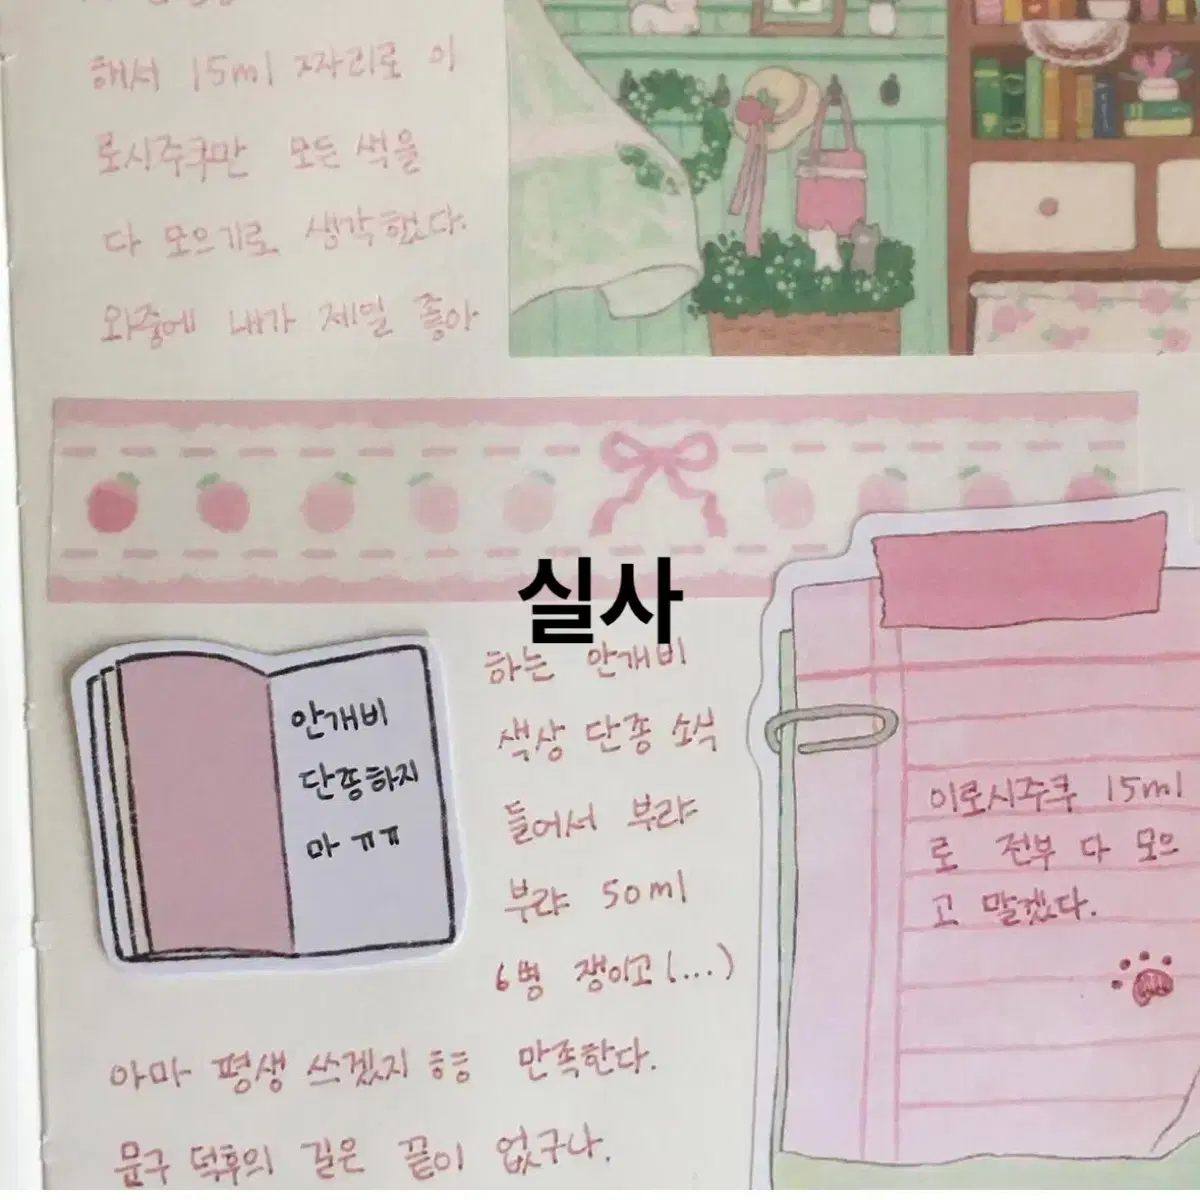 해서 15ml 짜리로 이
로시주쿠만 모든 색을
다 모으기로 생각했다.
와중에 내가 제일 좋아
실사
하는 안개비
색상 단종 소식
들어서 부랴
부랴 50ml
6병 쟁이고(...)
아마 평생 쓰겠지 ㅎㅎ 만족한다.
문구 덕후의 길은 끝이 없구나.
안개비
단쫑하지
마 ㅠㅠ
이로시주쿠 15ml
로 전부 다 모으
고 말겠다.